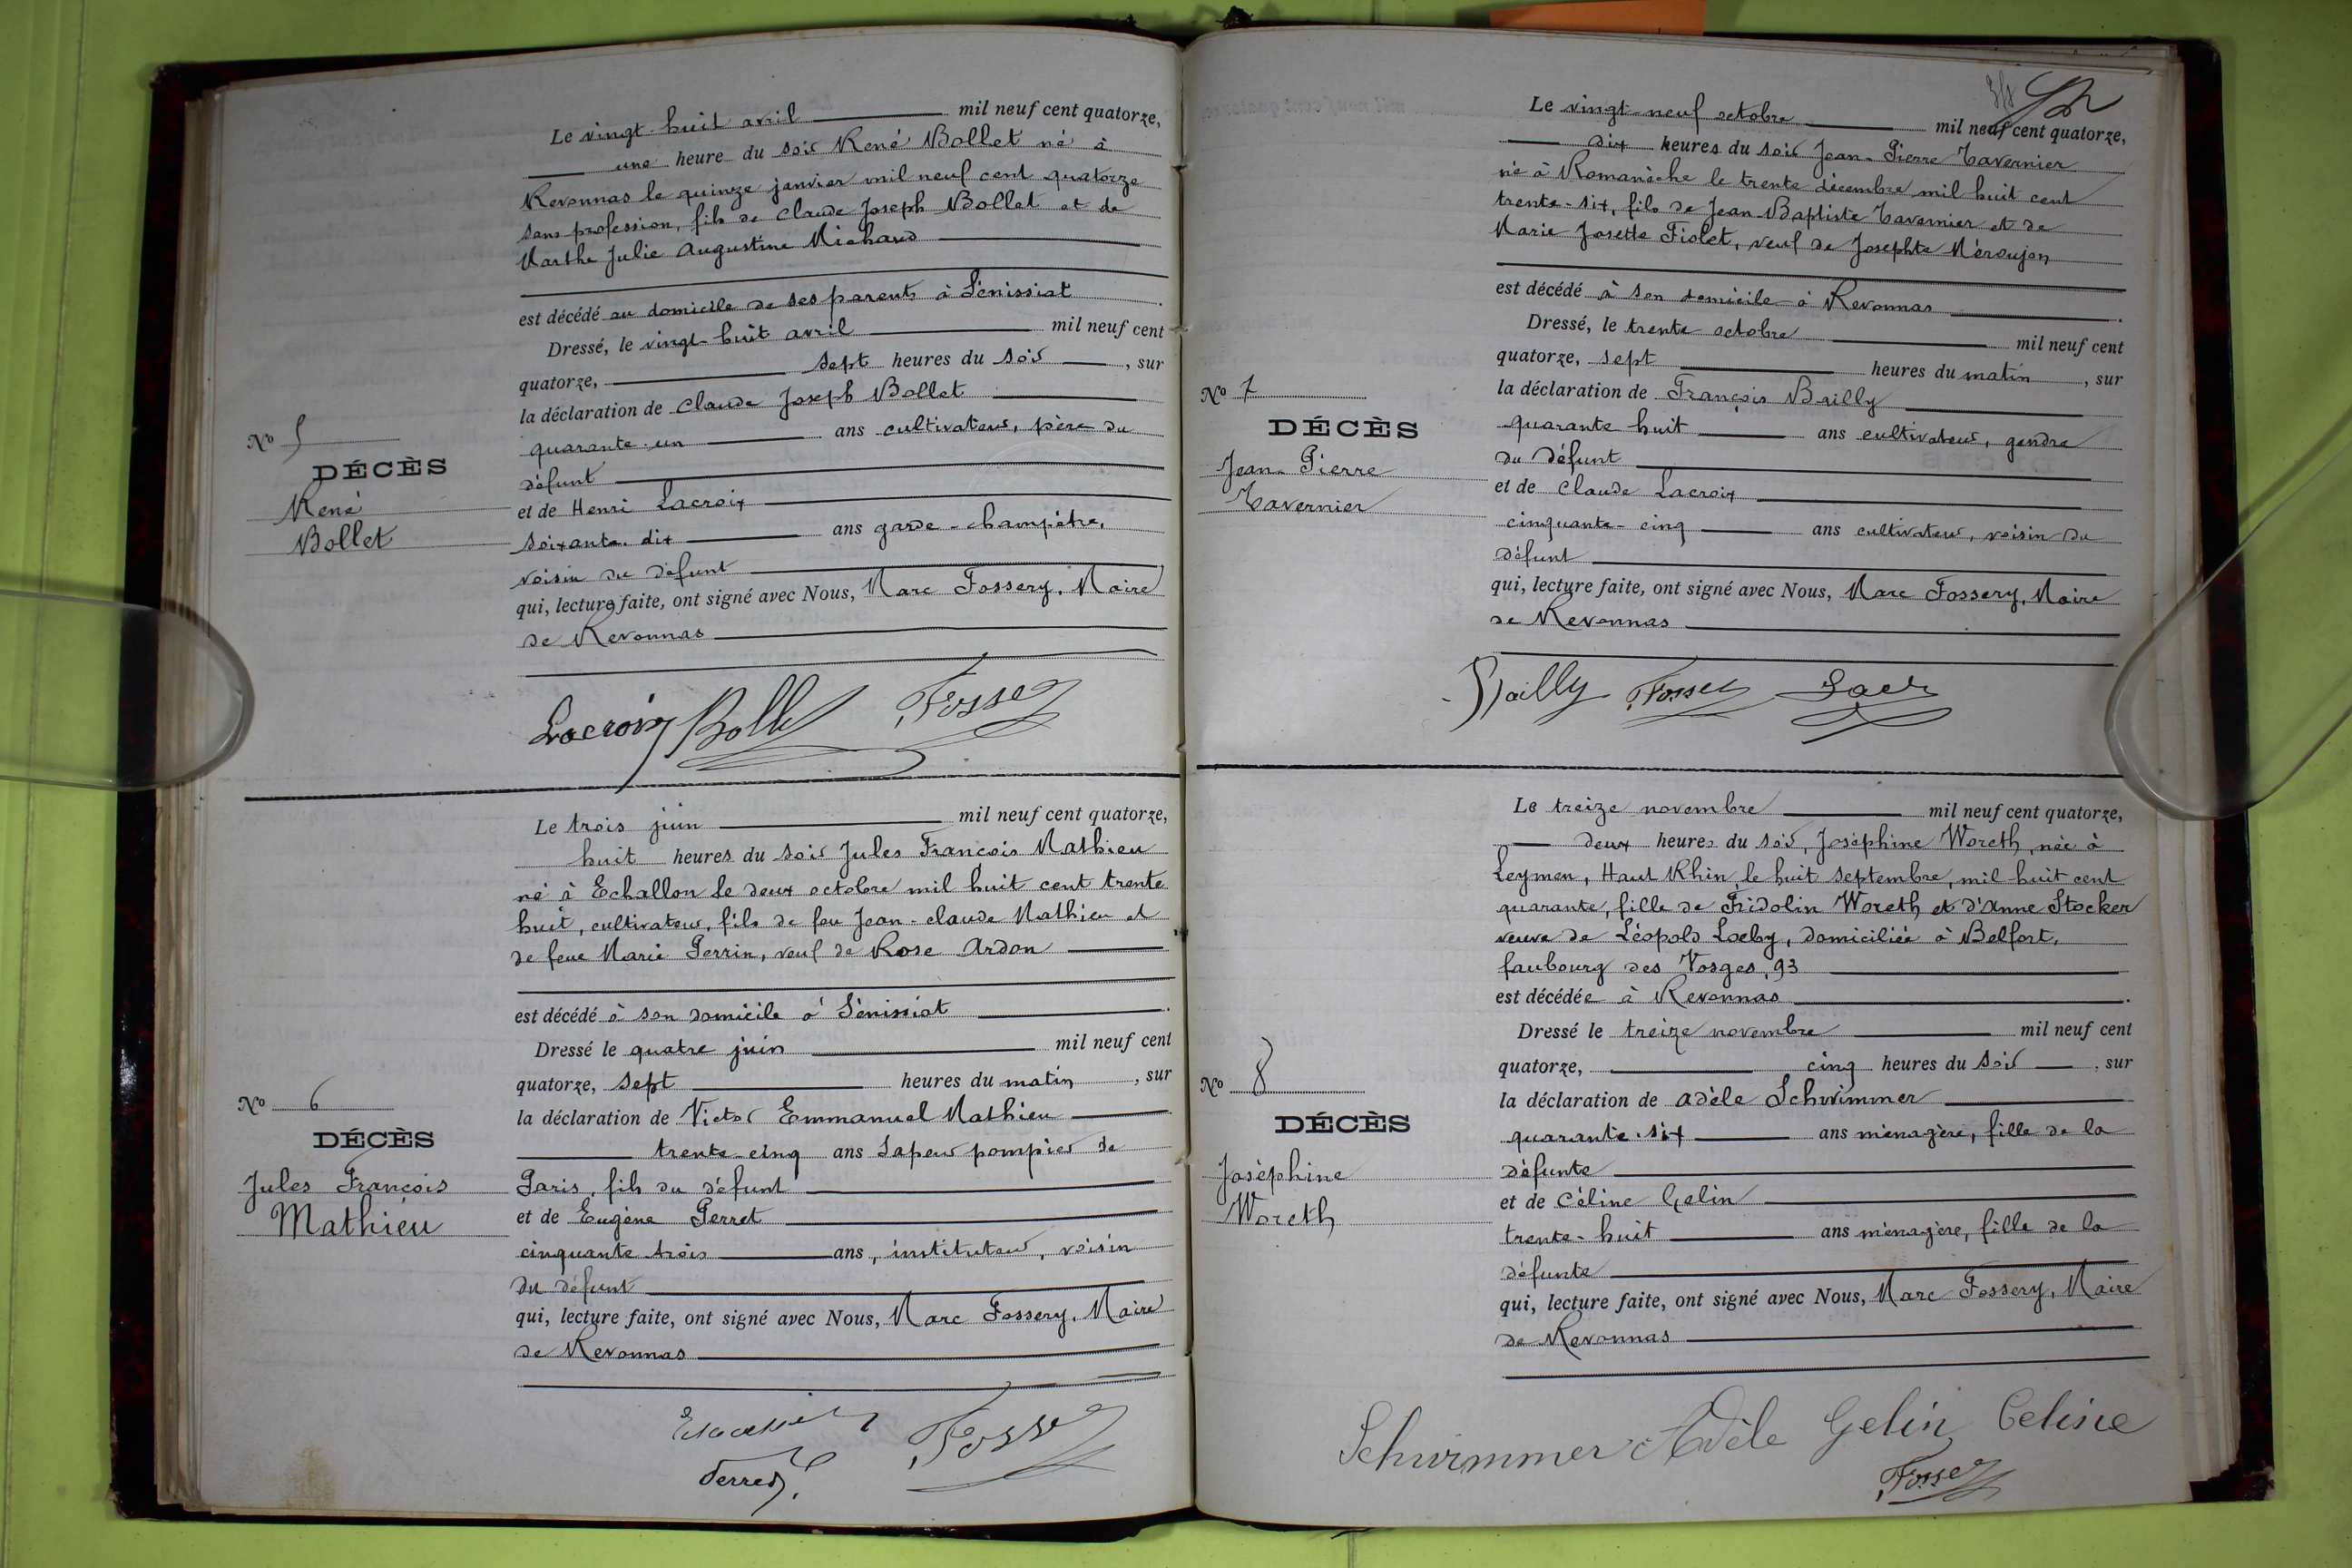 Le vingt-huit avril mil neuf cent quatorze,
une heure du soir René Bollet né à
Revonnas le quinze janvier mil neuf cent quatorze
sans profession, fils de Claude Joseph Bollet et de
Marthe Julie Augustine Michaud
est décédé au domicile de ses parents à Sénissiat.
Dressé, le vingt-huit avril mil neuf cent
quatorze, sept heures du soir, sur
la déclaration de Claude Joseph Bollet
quarante-un ans cultivateur, père du
défunt
et de Henri Lacroix
soixante-dix ans garde-champêtre,
voisin du défunt
qui, lecture faite, ont signé avec Nous, Marc Fossery, Maire
de Revonnas
No 5
DÉCÈS
René
Bollet
Lacroix Bollet Fossery
Le trois juin mil neuf cent quatorze,
huit heures du soir Jules François Mathieu
né à Echallon le deux octobre mil huit cent trente
huit, cultivateur, fils de feu Jean-Claude Mathieu et
de feue Marie Perrin, veuf de Rose Ardon
est décédé à son domicile à Sénissiat.
Dressé le quatre juin mil neuf cent
quatorze, sept heures du matin, sur
la déclaration de Victor Emmanuel Mathieu
trente-cinq ans Sapeur pompier de
Paris, fils du défunt
et de Eugène Perret
cinquante trois ans, instituteur, voisin
du défunt
qui, lecture faite, ont signé avec Nous, Marc Fossery, Maire
de Revonnas
No 6
DÉCÈS
Jules François
Mathieu
Fossery
Perret
Le vingt-neuf octobre mil neuf cent quatorze,
dix heures du soir Jean-Pierre Tavernier
né à Romanèche le trente décembre mil huit cent
trente-six, fils de Jean-Baptiste Tavernier et de
Marie Josette Fiolet, veuf de Josephte Méroujon
est décédé à son domicile à Revonnas.
Dressé, le trente octobre mil neuf cent
quatorze, sept heures du matin, sur
la déclaration de François Bailly
quarante huit ans cultivateur, gendre
du défunt
et de Claude Lacroix
cinquante-cinq ans cultivateur, voisin du
défunt
qui, lecture faite, ont signé avec Nous, Marc Fossery, Maire
de Revonnas
No 7
DÉCÈS
Jean-Pierre
Tavernier
Bailly Fossery
Le treize novembre mil neuf cent quatorze,
deux heures du soir, Joséphine Woreth, née à
Leymen, Haut Rhin, le huit septembre, mil huit cent
quarante, fille de Fridolin Woreth et d'Anne Stocker
veuve de Léopold Loeby, domiciliée à Belfort,
faubourg des Vosges, 93
est décédée à Revonnas.
Dressé le treize novembre mil neuf cent
quatorze, cinq heures du soir, sur
la déclaration de Adèle Schwimmer
quarante-six ans ménagère, fille de la
défunte
et de Céline Gelin
trente-huit ans ménagère, fille de la
défunte
qui, lecture faite, ont signé avec Nous, Marc Fossery, Maire
de Revonnas
No 8
DÉCÈS
Joséphine
Woreth
Schwimmer Adèle Gelin Celine
Fossery